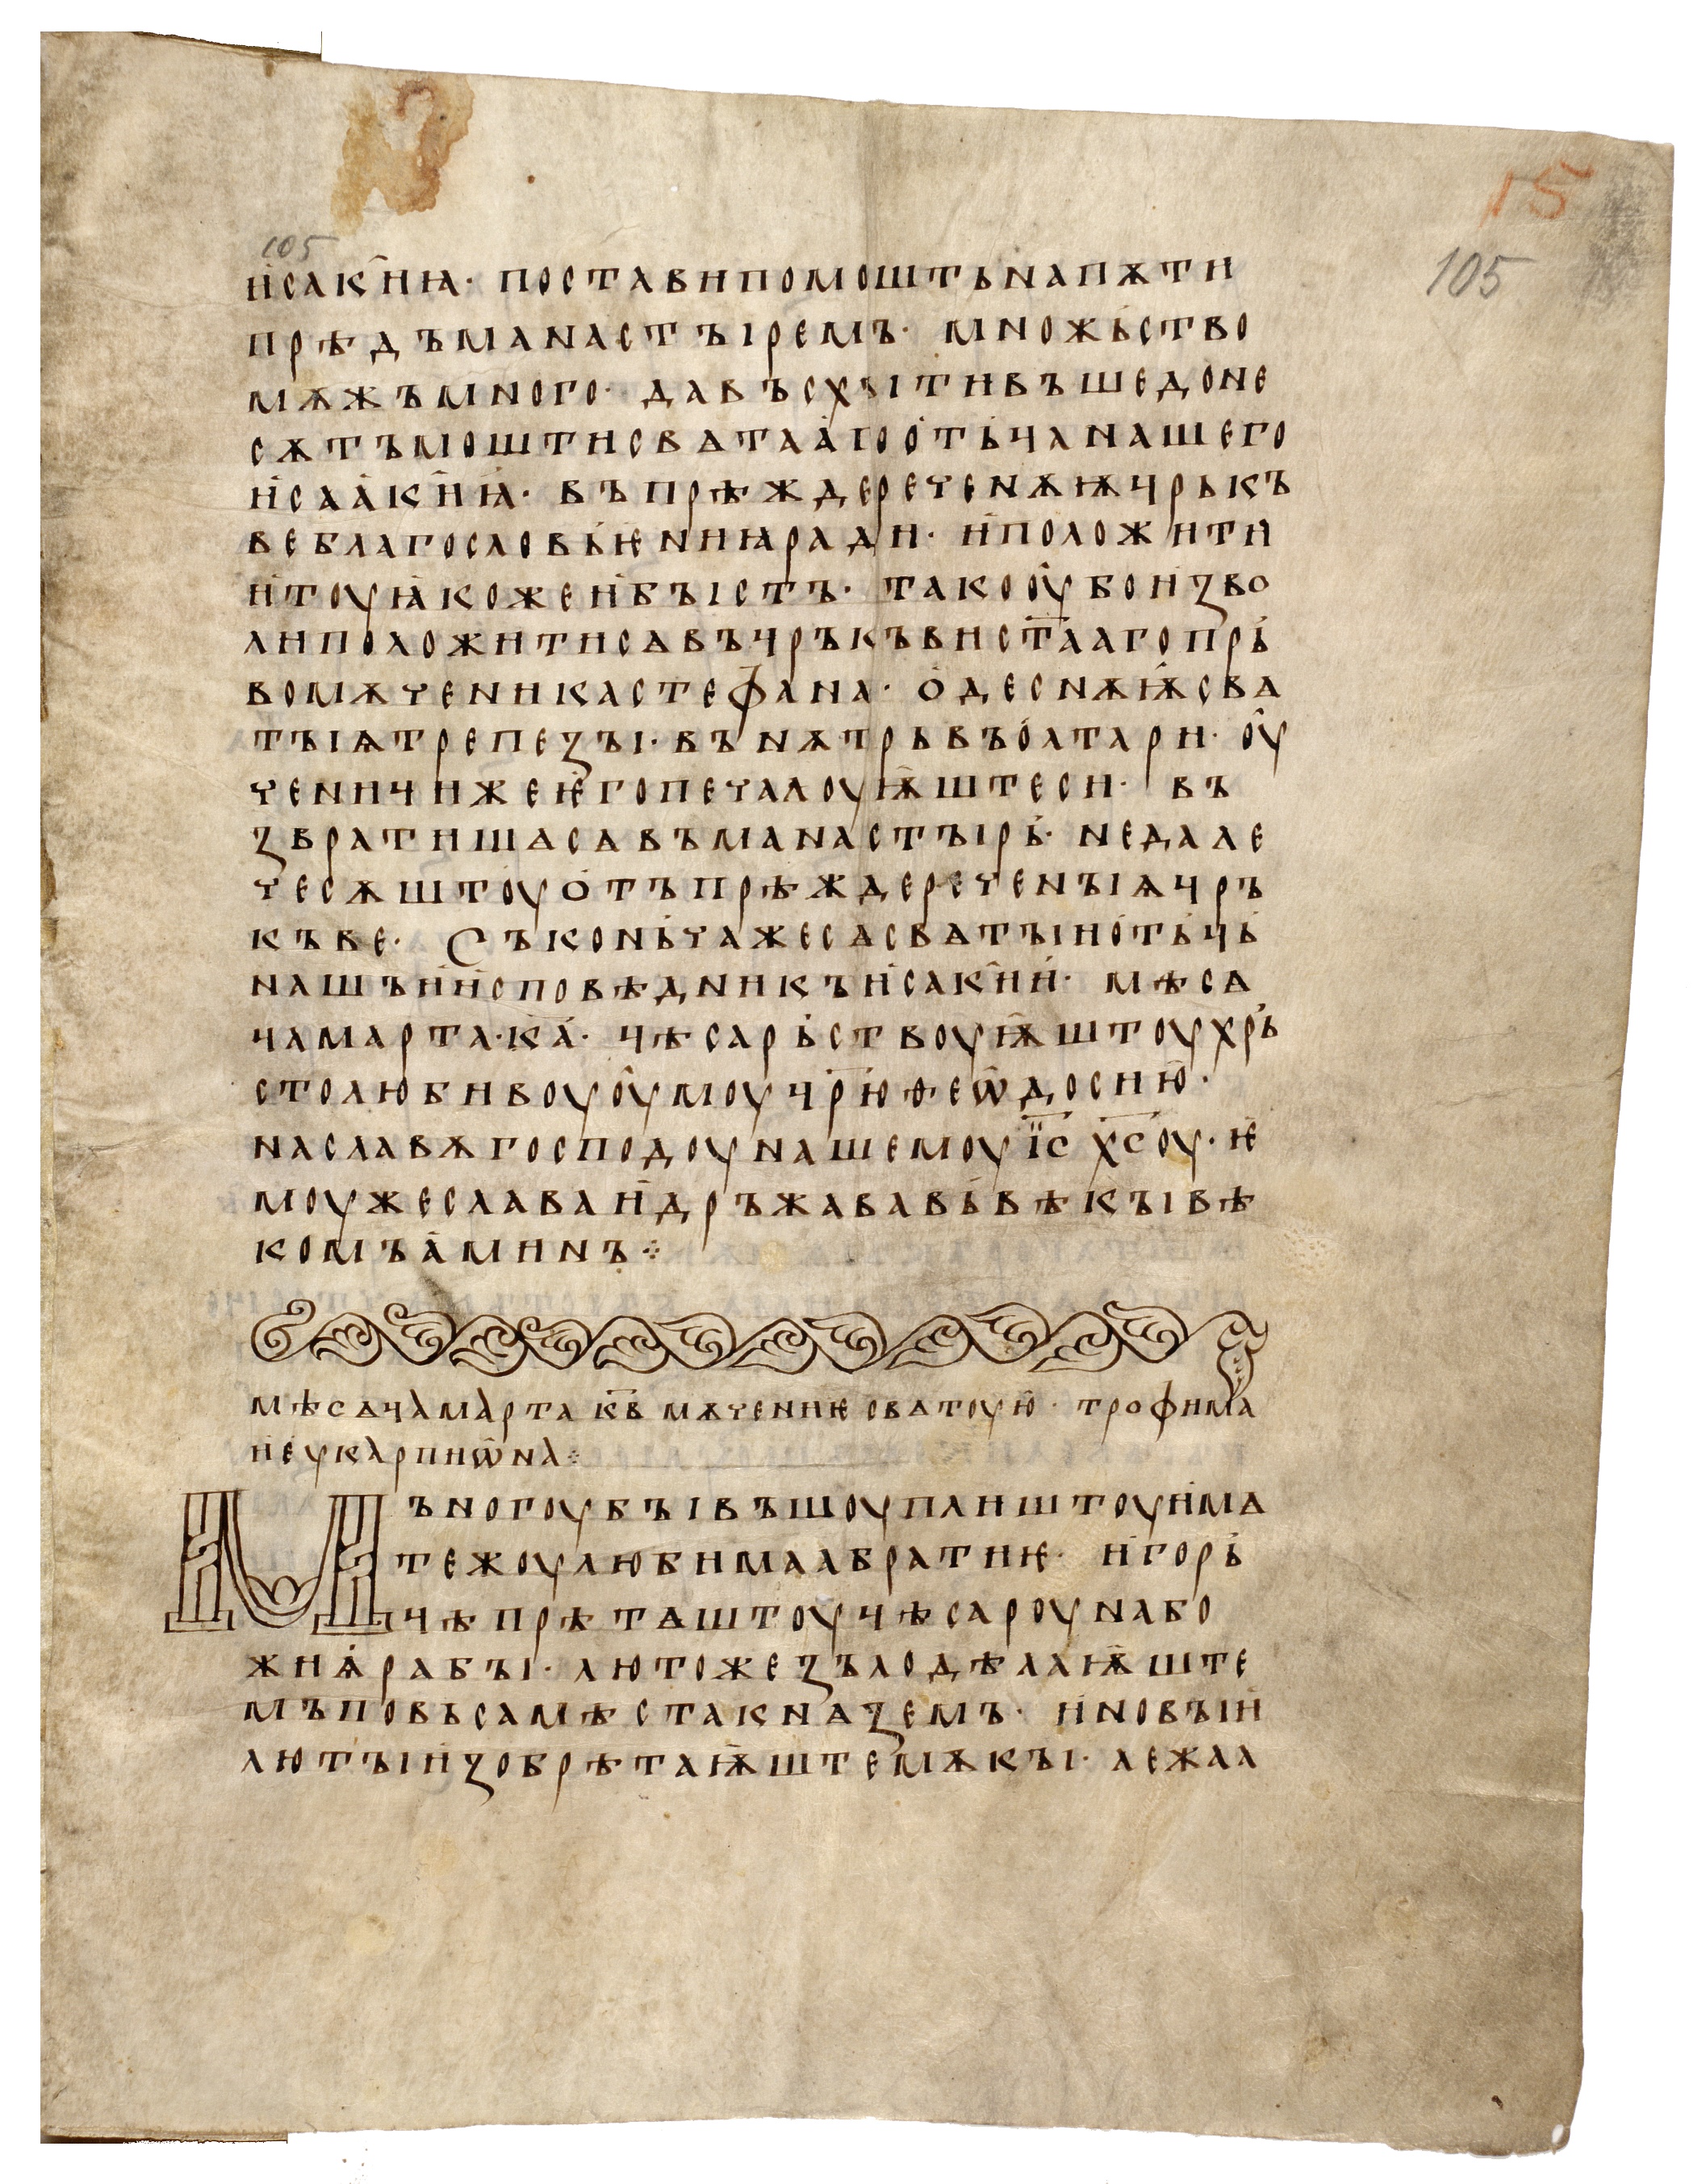 15
105
105
и҆сакїи҆ꙗ· постави помошть на пѫти
прѣдъ манастꙑремъ· множьство
мѫжъ много· да въсхꙑтивъше доне
сѫтъ мошти свѧтааго отьца нашего
и҆саакии҆ꙗ· въ прѣждереченѫѭ цръкъ
ве благословьѥниꙗ ради· и҆ положити
и҆ тоу ꙗкоже и҆ бꙑстъ· тако оубо изво
ли положити сѧ въ цръкъви стааго прь
вомѫченика стефана· о деснѫѭ свѧ
тꙑѩ трепезꙑ· вънѫтрь въ олтари· оу
ченици же ѥго печалоуѭште си· въ
звратишѧ сѧ въ манастꙑрь· недале
че сѫштоу отъ прѣждереченꙑѩ цръ
къве· Съконьча же сѧ свѧтꙑи отьць
нашъ и҆ и҆сповѣдникъ и҆сакии· мѣсѧ
ца марта·ка· цѣсарьствоуѭштоу хрь
столюбивоуоумоу црю ѳеѡдосию·
на славѫ господоу нашемоу їс хсоу· ѥ
моуже слава и҆ дръжава вь вѣкꙑ вѣ
комъ аминъ⁘
мѣсѧца марта кв мѫчениѥ свѧтоую· трофима
и еукарпиѡна⁘
Мъногоу бꙑвъшоу плиштоу и мѧ
тежоу любимаа братиѥ· и горь
цѣ прѣтѧштоу цѣсароу на бо
жиѩ рабꙑ· лютоже зъло дѣлаѭште
мъ по вьса мѣста кнѧземъ· и новꙑи
лютꙑ изобрѣтаѭште мѫкꙑ· лежаа